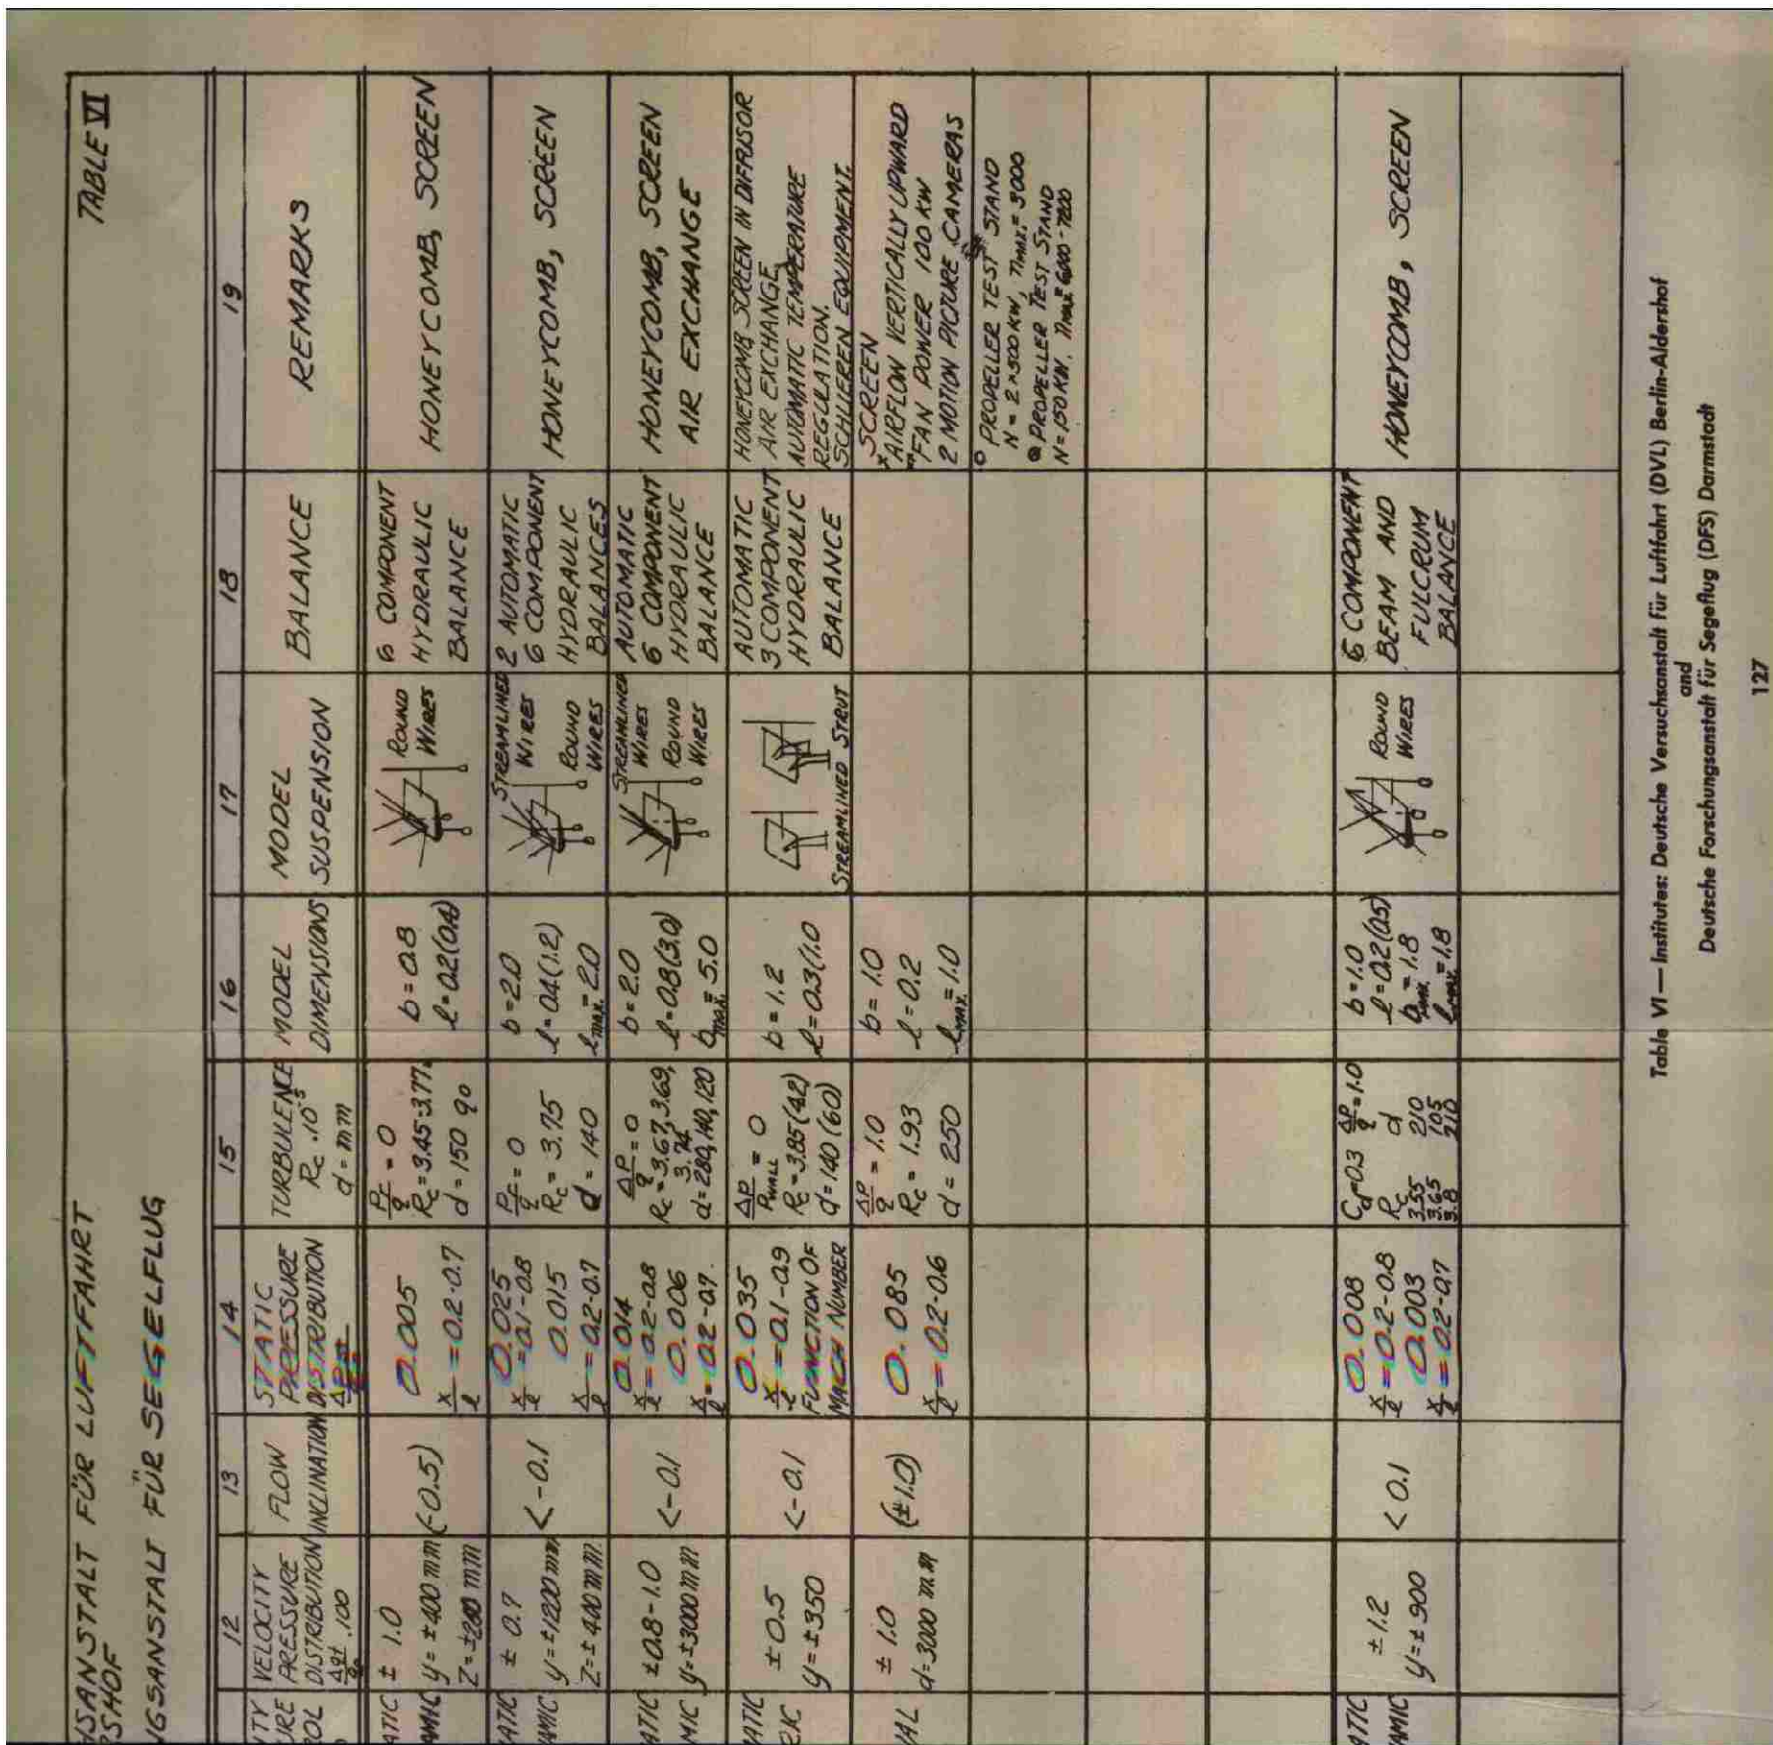 TABLE VI
HSANSTALT FÜR LUFTFAHRT
RSHOF
NGSANSTALT FÜR SEGELFLUG
12 13 14 15 16 17 18 19
TY
URE
ROL
VELOCITY
PRESSURE
DISTRIBUTION
.100
FLOW
INCLINATION
STATIC
PRESSURE
DISTRIBUTION
TURBULENCE
Rc .10⁻⁵
d = mm
MODEL
DIMENSIONS
MODEL
SUSPENSION
BALANCE
REMARKS
ATIC
AMIC
± 1.0
y = ±400 mm
Z = ±200 mm
(-0.5)
0.005
x/l = 0.2-0.7
P/q = 0
Rc = 3.45-3.77
d = 150 90
b = 0.8
l = 0.2(0.4)
ROUND
WIRES
6 COMPONENT
HYDRAULIC
BALANCE
HONEYCOMB, SCREEN
ATIC
AMIC
± 0.7
y = ±1200 mm
Z = ± 400 mm
<-0.1
0.025
x/l = 0.1-0.8
0.015
x/l = 0.2-0.7
P/q = 0
Rc = 3.75
d = 140
b = 2.0
l = 0.4(1.2)
l max. = 2.0
STREAMLINED
WIRES
ROUND
WIRES
2 AUTOMATIC
6 COMPONENT
HYDRAULIC
BALANCES
HONEYCOMB, SCREEN
ATIC
MIC
±0.8-1.0
y = ±3000 mm
<-0.1
0.014
x/l = 0.2-0.8
0.006
x/l = 0.2-0.7
ΔP/q = 0
Rc = 3.67, 3.69,
3.74
d = 280, 140, 120
b = 2.0
l = 0.8(3.0)
b max. = 5.0
STREAMLINED
WIRES
ROUND
WIRES
AUTOMATIC
6 COMPONENT
HYDRAULIC
BALANCE
HONEYCOMB, SCREEN
AIR EXCHANGE
ATIC
RIC
±0.5
y = ±350
<-0.1
0.035
x/l = 0.1-0.9
FUNCTION OF
MACH NUMBER
ΔP/P WALL = 0
Rc = 3.85(4.2)
d = 140 (60)
b = 1.2
l = 0.3(1.0
STREAMLINED STRUT
AUTOMATIC
3 COMPONENT
HYDRAULIC
BALANCE
HONEYCOMB SCREEN IN DIFFUSOR
AIR EXCHANGE
AUTOMATIC TEMPERATURE
REGULATION.
SCHLIEREN EQUIPMENT.
VAL
± 1.0
d = 3000 mm
(±1.0)
0.085
x/l = 0.2-0.6
ΔP/q = 1.0
Rc = 1.93
d = 250
b = 1.0
l = 0.2
l max. = 1.0
SCREEN
x AIRFLOW VERTICALLY UPWARD
xx FAN POWER 100 KW
2 MOTION PICTURE CAMERAS
o PROPELLER TEST STAND
N = 2 × 500 KW, n max. = 3000
PROPELLER TEST STAND
ATIC
AMIC
±1.2
y = ± 900
< 0.1
0.008
x/l = 0.2-0.8
0.003
x/l = 0.2-0.7
Cd = 0.3 ΔP/q = 1.0
Rc d
3.55 210
3.65 105
3.8 210
b = 1.0
l = 0.2(0.5)
b max. = 1.8
l max. = 1.8
ROUND
WIRES
6 COMPONENT
BEAM AND
FULCRUM
BALANCE
HONEYCOMB, SCREEN
Table VI — Institutes: Deutsche Versuchsanstalt für Luftfahrt (DVL) Berlin-Aldershof
and
Deutsche Forschungsanstalt für Segeflug (DFS) Darmstadt
127